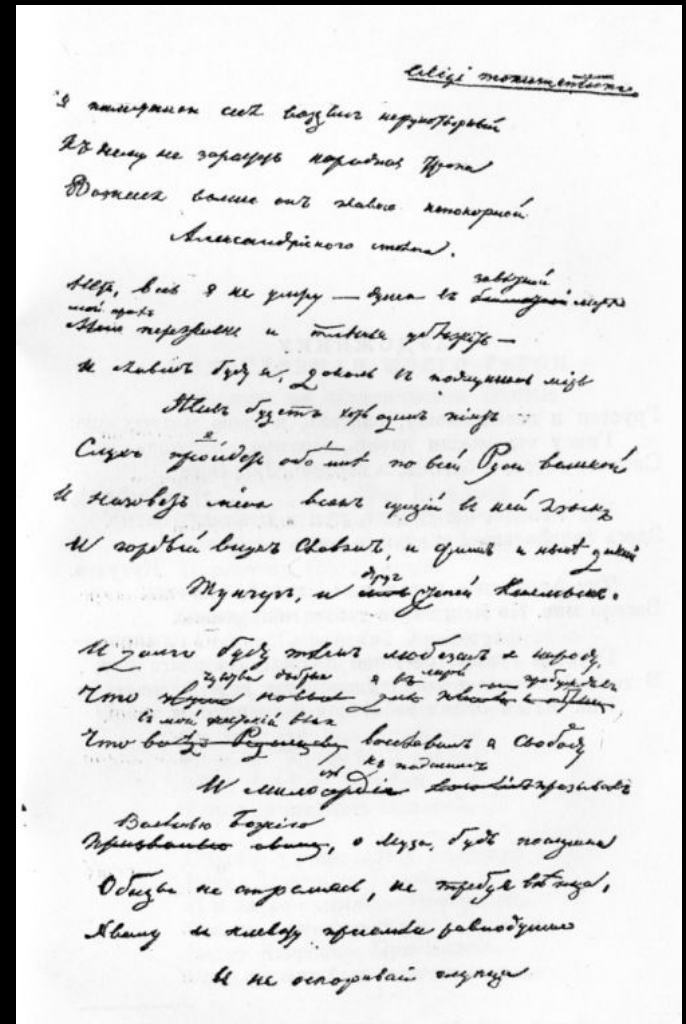 Exegi monumentum.
Я памятникъ себѣ воздвигъ нерукотворный
Къ нему не заростетъ народная тропа
Вознесся выше онъ главою непокорной
Александрійскаго столпа.
завѣтной
Нѣтъ, весь я не умру — душа въ лирѣ
мой прахъ
переживетъ и тлѣнья убѣжитъ —
И славенъ буду я, доколь въ подлунномъ мірѣ
Живъ будетъ хоть одинъ піитъ
Слухъ пройдетъ обо мнѣ по всей Руси великой
И назоветъ меня всякъ сущій въ ней языкъ
И гордый внукъ Славянъ, и финнъ, и нынѣ дикой
другъ
Тунгузъ, и степей Калмыкъ.
И долго буду тѣмъ любезенъ я народу
чувства добрыя я лирой пробуждалъ
Что звуки новые для пѣсенъ я обрѣлъ
въ мой жестокій вѣкъ
Что вслѣдъ Радищеву возславилъ я Свободу
къ падшимъ
И милосердіе призывалъ
Веленью Божію
Призванью своему, о Муза, будь послушна
Обиды не страшась, не требуя вѣнца,
Хвалу и клевету пріемли равнодушно
И не оспоривай глупца